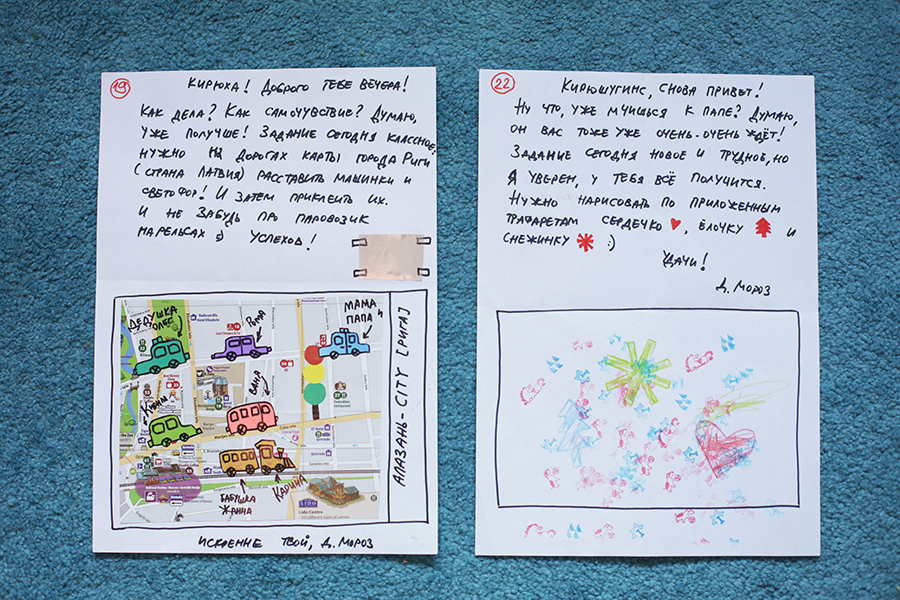 19
Кирюха! Доброго тебе вечера!
Как дела? Как самочувствие? Думаю,
уже получше! Задание сегодня классное:
нужно на дорогах карты города Риги
(страна Латвия) расставить машинки и
светофор! И затем приклеить их.
И не забудь про паровозик
на рельсах :) Успехов!
Дедушка
Олег
Рома
Мама
Папа
Ваня
Бабушка
Жанна
Карина
Lido Centre
АЛАЗАНЬ-CITY [РИГА]
Искренне твой, Д. Мороз
22
Кирюшугинс, снова привет!
Ну что, уже мчишься к папе? Думаю,
он вас тоже уже очень-очень ждёт!
Задание сегодня новое и трудное, но
я уверен, у тебя всё получится.
Нужно нарисовать по приложенным
трафаретам сердечко, ёлочку и
снежинку :)
Удачи!
Д. Мороз